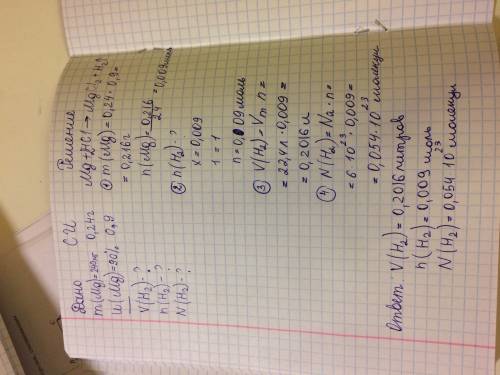 Дано
СИ
Решение
m(Mg)=240мг 0,24г
w(Mg)=90% 0,9
V(H2)-?
n(H2)-?
N(H2)-?
Mg+HCl→MgCl2+H2
① m(Mg)=0,24·0,9=
=0,216г
n(Mg)=0,216/24=0,009моль
② n(H2)-?
x=0,009
1=1
n=0,009моль
③ V(H2)=Vm·n=
=22,4л·0,009=
=0,2016л
④ N(H2)=Na·n=
=6·10^23·0,009=
=0,054·10^23молекул
Ответ: V(H2)=0,2016литров
n(H2)=0,009моль
N(H2)=0,054·10^23молекул